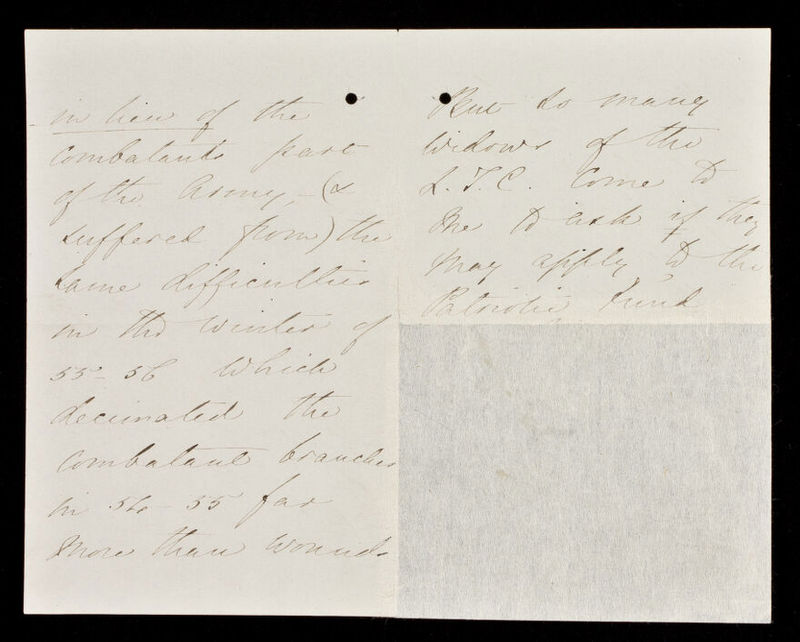 in lieu of the
combatants part
of the Army, - (&
suffered from) the
same difficulties
in the winter of
55-56 which
decimated the
combatant branches
in 54-55 far
more than wounds
But so many
widows of the
L.T.C. come to
me to ask if they
may apply to the
Patriotic Fund